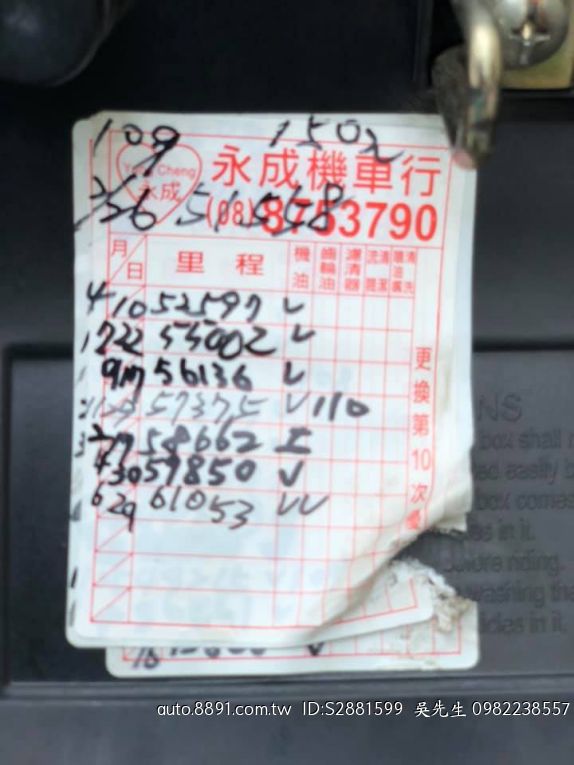 109 150
Yung Cheng 永成 永成機車行
51558
(08)8753790
月 日 里程 機油 齒輪油 濾清器
4 10 52597 ✓
7 22 55002 ✓
9 17 56136 ✓
57375 ✓ 110
58662
4 30 59850 ✓
6 29 61053 ✓✓
更換第10次
NS
box shall
easily b
box comes
s in it.
before riding.
washing the
ides in it.
auto.8891.com.tw ID:S2881599 吳先生 0982238557